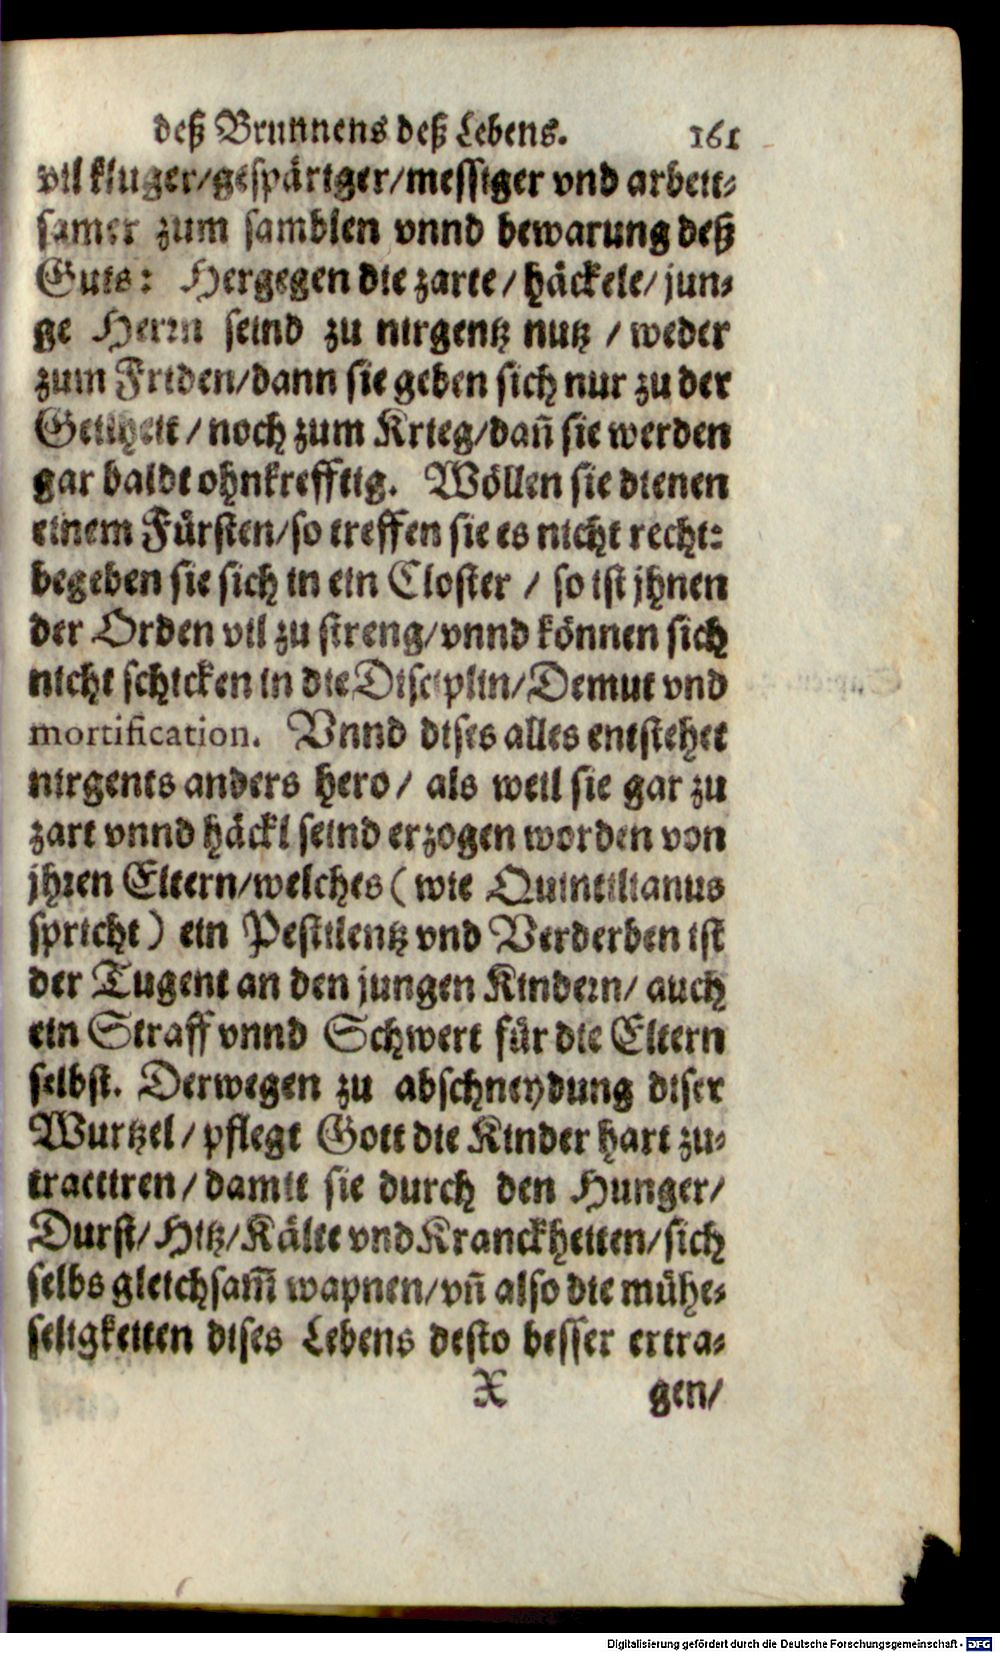 deß Brunnens deß Lebens. 161
vil kluger/gespäriger/messiger vnd arbeit-
samer zum samblen vnnd bewarung deß
Guts: Hergegen die zarte/ häckele/ jun-
ge Herrn seind zu nirgentz nutz / weder
zum Friden/dann sie geben sich nur zu der
Geilheit / noch zum Krieg/dañ sie werden
gar baldt ohnkrefftig. Wöllen sie dienen
einem Fürsten/so treffen sie es nicht recht:
begeben sie sich in ein Closter / so ist jhnen
der Orden vil zu streng/vnnd können sich
nicht schicken in die Disciplin/Demut vnd
mortification. Vnnd dises alles entstehet
nirgents anders hero/ als weil sie gar zu
zart vnnd häckl seind erzogen worden von
jhren Eltern/welches (wie Quintilianus
spricht) ein Pestilentz vnd Verderben ist
der Tugent an den jungen Kindern/ auch
ein Straff vnnd Schwert für die Eltern
selbst. Derwegen zu abschneydung diser
Wurtzel / pflegt Gott die Kinder hart zu-
tractiren/ damit sie durch den Hunger/
Durst/ Hitz/Kälte vnd Kranckheiten/sich
selbs gleichsam̃ wapnen/vñ also die mühe-
seligkeiten dises Lebens desto besser ertra-
X gen/
Digitalisierung gefördert durch die Deutsche Forschungsgemeinschaft - DFG